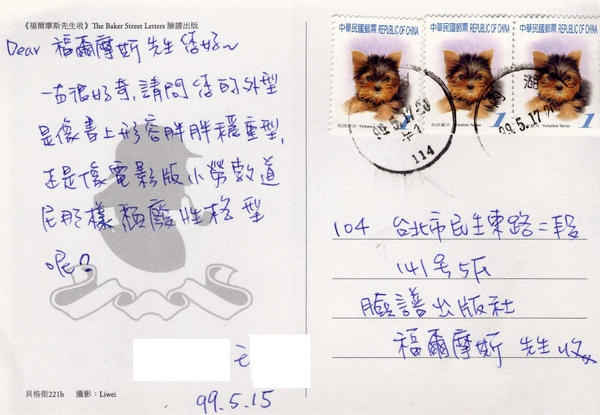 《福爾摩斯先生收》 The Baker Street Letters 臉譜出版
Dear 福爾摩斯先生您好~
一直很好奇,請問您的外型
是像書上形容胖胖穩重型,
還是像電影版小勞勃道
尼那樣頹廢性格型
呢?
99.5.15
貝格街221b 攝影:Liwei
中華民國郵票 REPUBLIC OF CHINA
約克夏犬 Yorkshire Terrier
1
中華民國郵票 REPUBLIC OF CHINA
1
中華民國郵票 REPUBLIC OF CHINA
約克夏犬 Yorkshire Terrier
1
99.5.17.20
114
湖
99.5.17.20
104 台北市民生東路二段
141號5F
臉譜出版社
福爾摩斯 先生 收